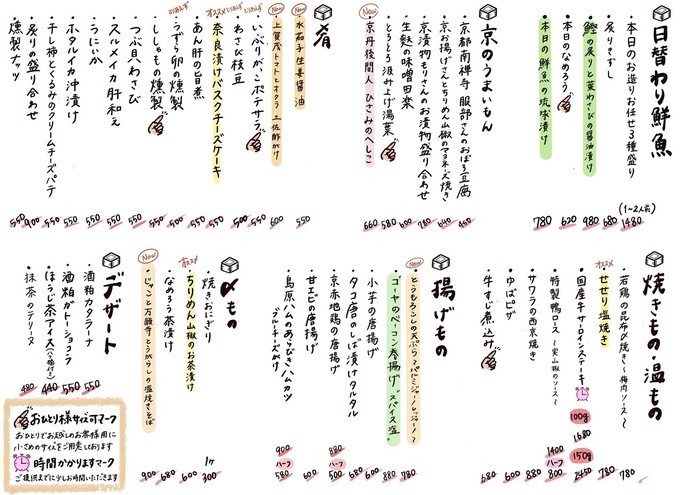 日替わり鮮魚
・本日のお造りお任せ3種盛り (1〜2人前) 1480
・炙りすし 680
・鰹の炙りと葉わさびの醤油漬け 980
・本日のなめろう 620
・本日の鮮魚の琉球漬け 780
京のうまいもん
・京都南禅寺 服部さんのおぼろ豆腐 450
・京お揚げさんとちりめん山椒のマヨネーズ焼き 640
・京漬物もりさんのお漬物盛り合わせ 780
・生麩の味噌田楽 600
・とろとろ汲み上げ湯葉 580
New
・京丹後間人 ひさみのへしこ 660
肴
New
・水茄子生姜醤油 550
New
・上賀茂トマトとオクラ 土佐酢がけ 600
とりあえず
・いぶりがっこポテサラ 550
とりあえず
・わさび枝豆 500
オススメ
・奈良漬けバスクチーズケーキ 550
・あん肝の旨煮 550
とりあえず
・うずら卵の燻製 550
・ししゃもの燻製 550
・つぶ貝わさび 550
・スルメイカ肝和え 550
・うにいか 550
・ホタルイカ沖漬け 550
・干し柿とくるみのクリームチーズパテ 550
・炙りの盛り合わせ 900
・燻製ナッツ 550
焼きもの・温もの
・若鶏の昆布〆焼き〜梅肉ソース〜 780
オススメ
・せせり塩焼き 780
・国産牛サーロインステーキ 100g 1680 150g 2450
・特製鴨ロース〜実山椒のソース〜 1400 ハーフ 800
・サワラの西京焼き 880
・ゆばピザ 680
・牛すじ煮込み 680
揚げもの
New
・とうもろこしの天ぷら〜パルミジャーノ・レッジャーノ〜 780
・ゴーヤのベーコン巻揚げ"スパイス塩" 880
・小芋の唐揚げ 680
・タコ唐のしば漬けタルタル 680
・京赤地鶏の唐揚げ 880 ハーフ 500
・甘エビの唐揚げ 600
・島原ハムのあらびきハムカツ ブルーチーズがけ 900 ハーフ 580
〆もの
・焼きおにぎり 1ケ 300
オススメ
・ちりめん山椒のお茶漬け 600
・なめろう茶漬け 680
New
・じゃこと万願寺とうがらしの塩焼きそば 900
デザート
・酒粕カタラーナ 550
・酒粕ガトーショコラ 550
・ほうじ茶アイス 440
・抹茶のテリーヌ 480
おひとり様サイズ可マーク
おひとりでお越しのお客様用に
小さめのサイズをご用意しております
時間かかりますマーク
ご提供までに少しお時間いただきます